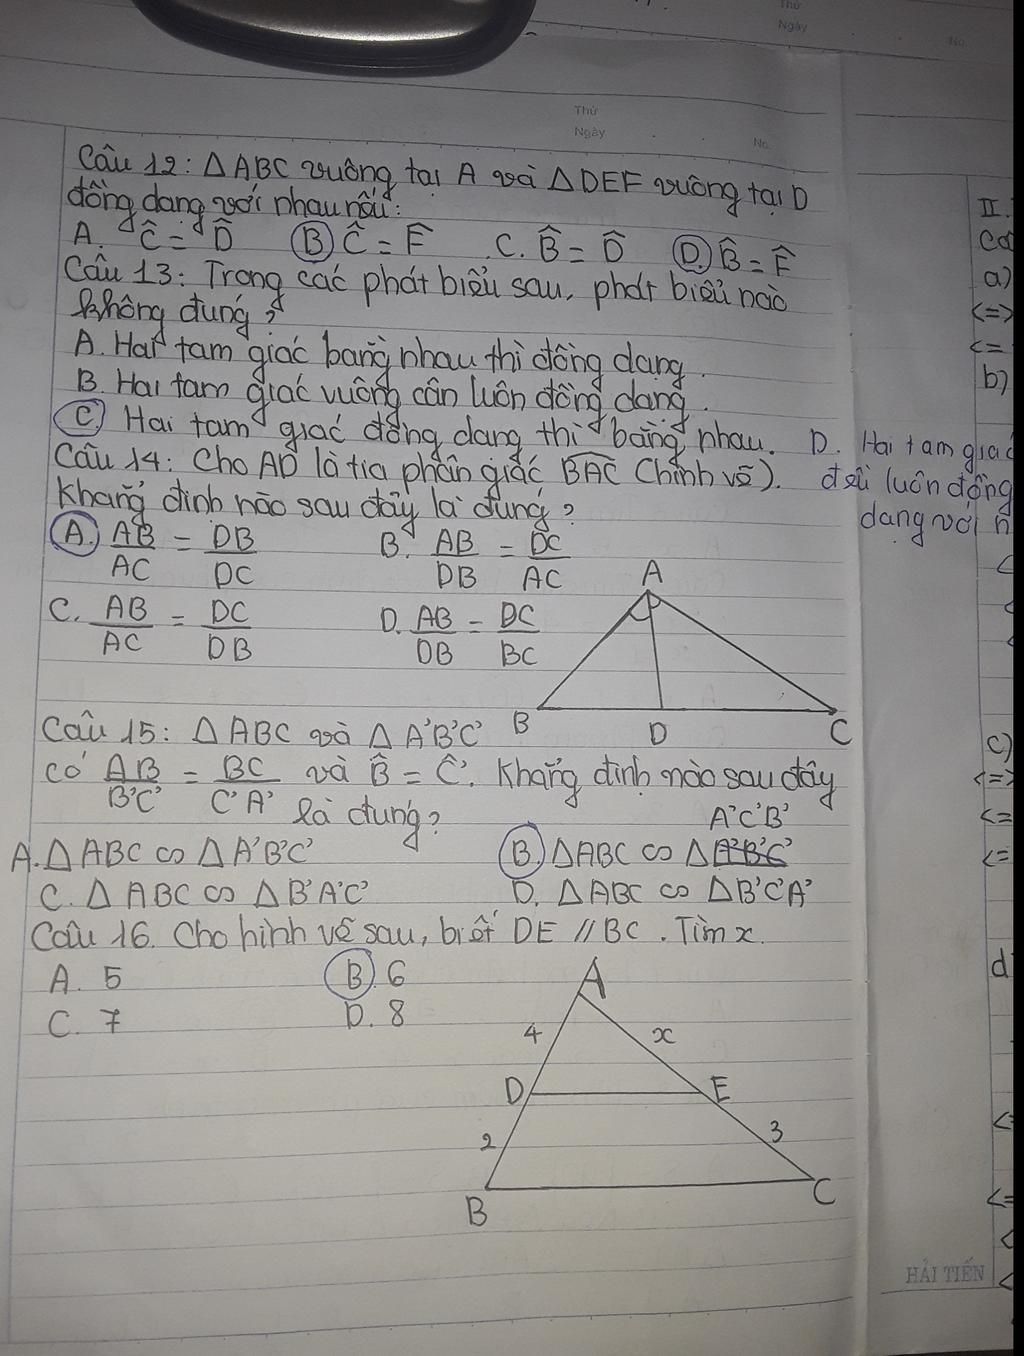 Thứ
Ngày
No.
Thứ
Ngày
No.
Câu 12: △ABC vuông tại A và △DEF vuông tại D
đồng dạng với nhau nếu:
A. Ĉ = D̂ B) Ĉ = F̂ C. B̂ = D̂ D) B̂ = F̂
Câu 13: Trong các phát biểu sau, phát biểu nào
không đúng?
A. Hai tam giác bằng nhau thì đồng dạng.
B. Hai tam giác vuông cân luôn đồng dạng.
C) Hai tam giác đồng dạng thì bằng nhau. D. Hai tam giác
đều luôn đồng
dạng với n
Câu 14: Cho AD là tia phân giác BAC (hình vẽ).
Khẳng định nào sau đây là đúng?
A. AB/AC = DB/DC B. AB/DB = DC/AC
C. AB/AC = DC/DB D. AB/DB = DC/BC
A
B
D
C
Câu 15: △ABC và △A'B'C'
có AB/B'C' = BC/C'A' và B̂ = Ĉ'. Khẳng định nào sau đây
là đúng?
A. △ABC ∽ △A'B'C' B. △ABC ∽ △A'C'B'
C. △ABC ∽ △B'A'C' D. △ABC ∽ △B'C'A'
Câu 16. Cho hình vẽ sau, biết DE // BC. Tìm x.
A. 5 B) 6
C. 7 D. 8
A
4 x
D E
2 3
B C
II.
a)
<=>
<=
b)
c)
<=>
<=
<=
d
<=
HẢI TIẾN